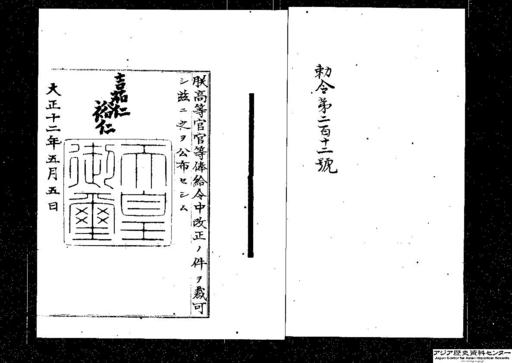 勅令第二百十二號
朕高等官官等俸給令中改正ノ件ヲ裁可
シ茲ニ之ヲ公布セシム
嘉仁
裕仁
天皇
御璽
大正十二年五月五日
アジア歴史資料センター
Japan Center for Asian Historical Records